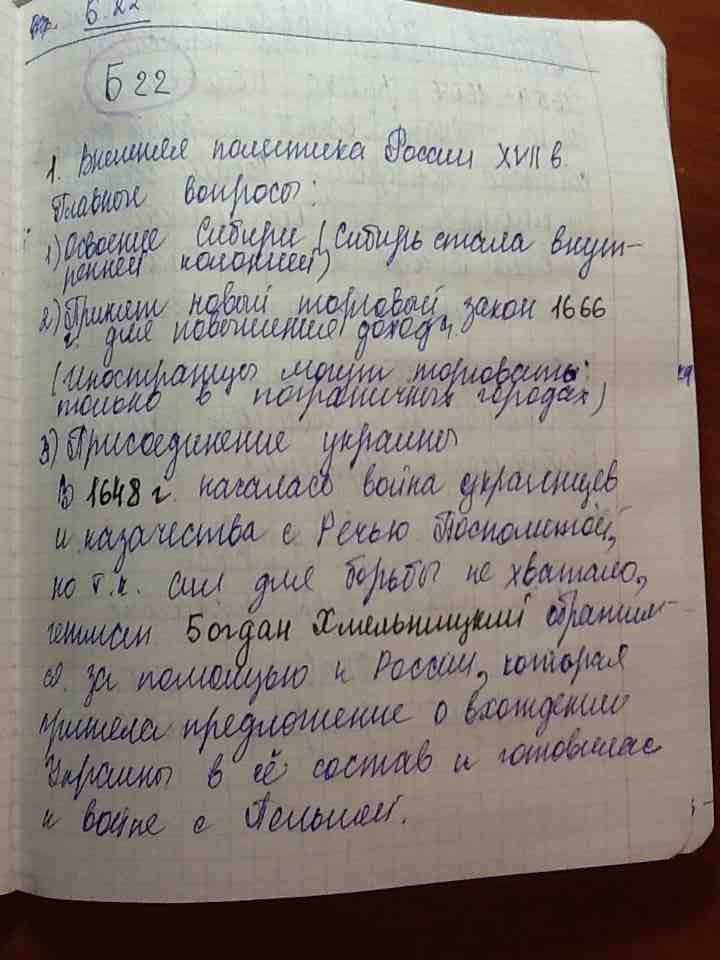 Б. 22
Б 22
1. Внешняя политика России XVII в.
Главные вопросы:
1) Освоение Сибири (Сибирь стала внут-
ренней колонией)
2) Принят новый торговый закон 1666
г. для повышения дохода
(Иностранцы могут торговать
только в пограничных городах)
3) Присоединение украины
В 1648 г. началась война украинцев
и казачества с Речью Посполитой,
но т.к. сил для борьбы не хватало,
гетман Богдан Хмельницкий обратил-
ся за помощью к России, которая
приняла предложение о вхождении
Украины в её состав и готовилась
к войне с Польшей.